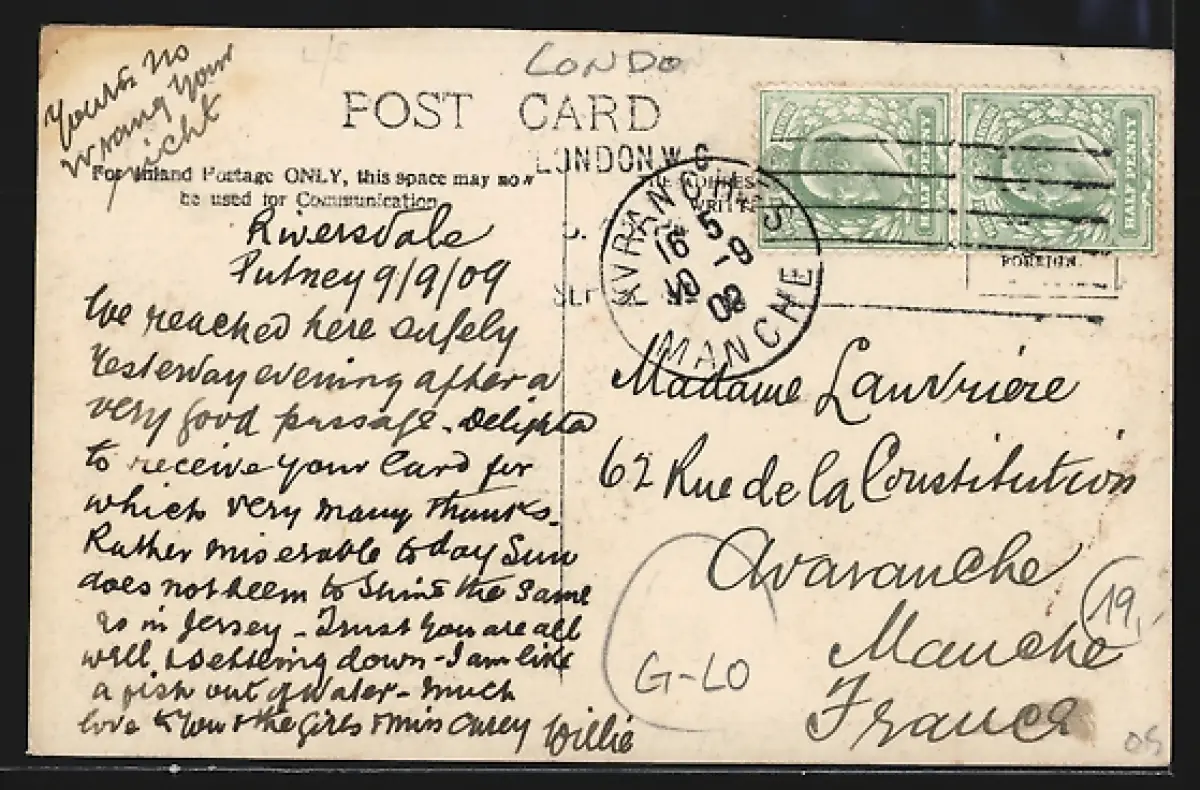 LONDO
POST CARD
Yours no
wrong your
right
For Inland Postage ONLY, this space may now
be used for Communication
LONDON.W.C
AVRANCHES
5 9
16
09
MANCHE
HALF PENNY
HALF PENNY
FOREIGN.
Riversdale
Putney 9/9/09
We reached here safely
Yesterday evening after a
very good passage. Delighted
to receive your Card for
which very many thanks.
Rather miserable today Sun
does not seem to shine the same
as in Jersey - Trust you are all
well & settling down - I am like
a fish out of water - Much
love to You & the Girls & Miss Carey Willie
Madame Lauvrière
62 Rue de la Constitution
Avaranche
Manche
France
19
G-LO